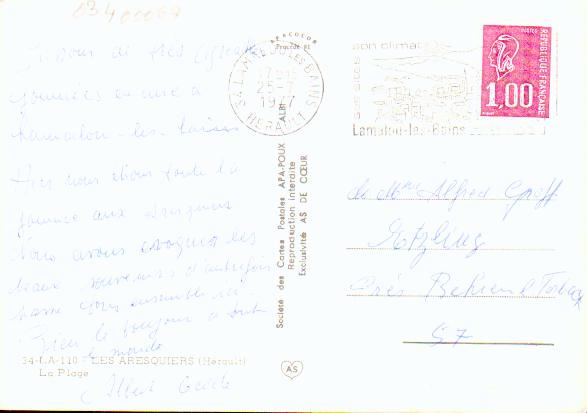 03400067
APACOLOR
Procédé 81
34 LAMALOU LES BAINS
17H15
25-7
1977
HERAULT
ALBI
son climat
ses sites
Lamalou-les-Bains
POSTES
REPUBLIQUE FRANÇAISE
1,00
de très
journées
Lamalou-les-Bains
Hier nous étions toute la
journée aux Aresquiers
Nous avons évoqué les
beaux souvenirs d'autrefois
passé ensemble
Bien le bonjour à tout
le monde
Albert
Société des Cartes Postales APA-POUX
Reproduction interdite
Exclusivité AS DE CŒUR
Mme Alfred
Etzling
près Behren
57
34-LA-110 - LES ARESQUIERS (Hérault)
La Plage
AS